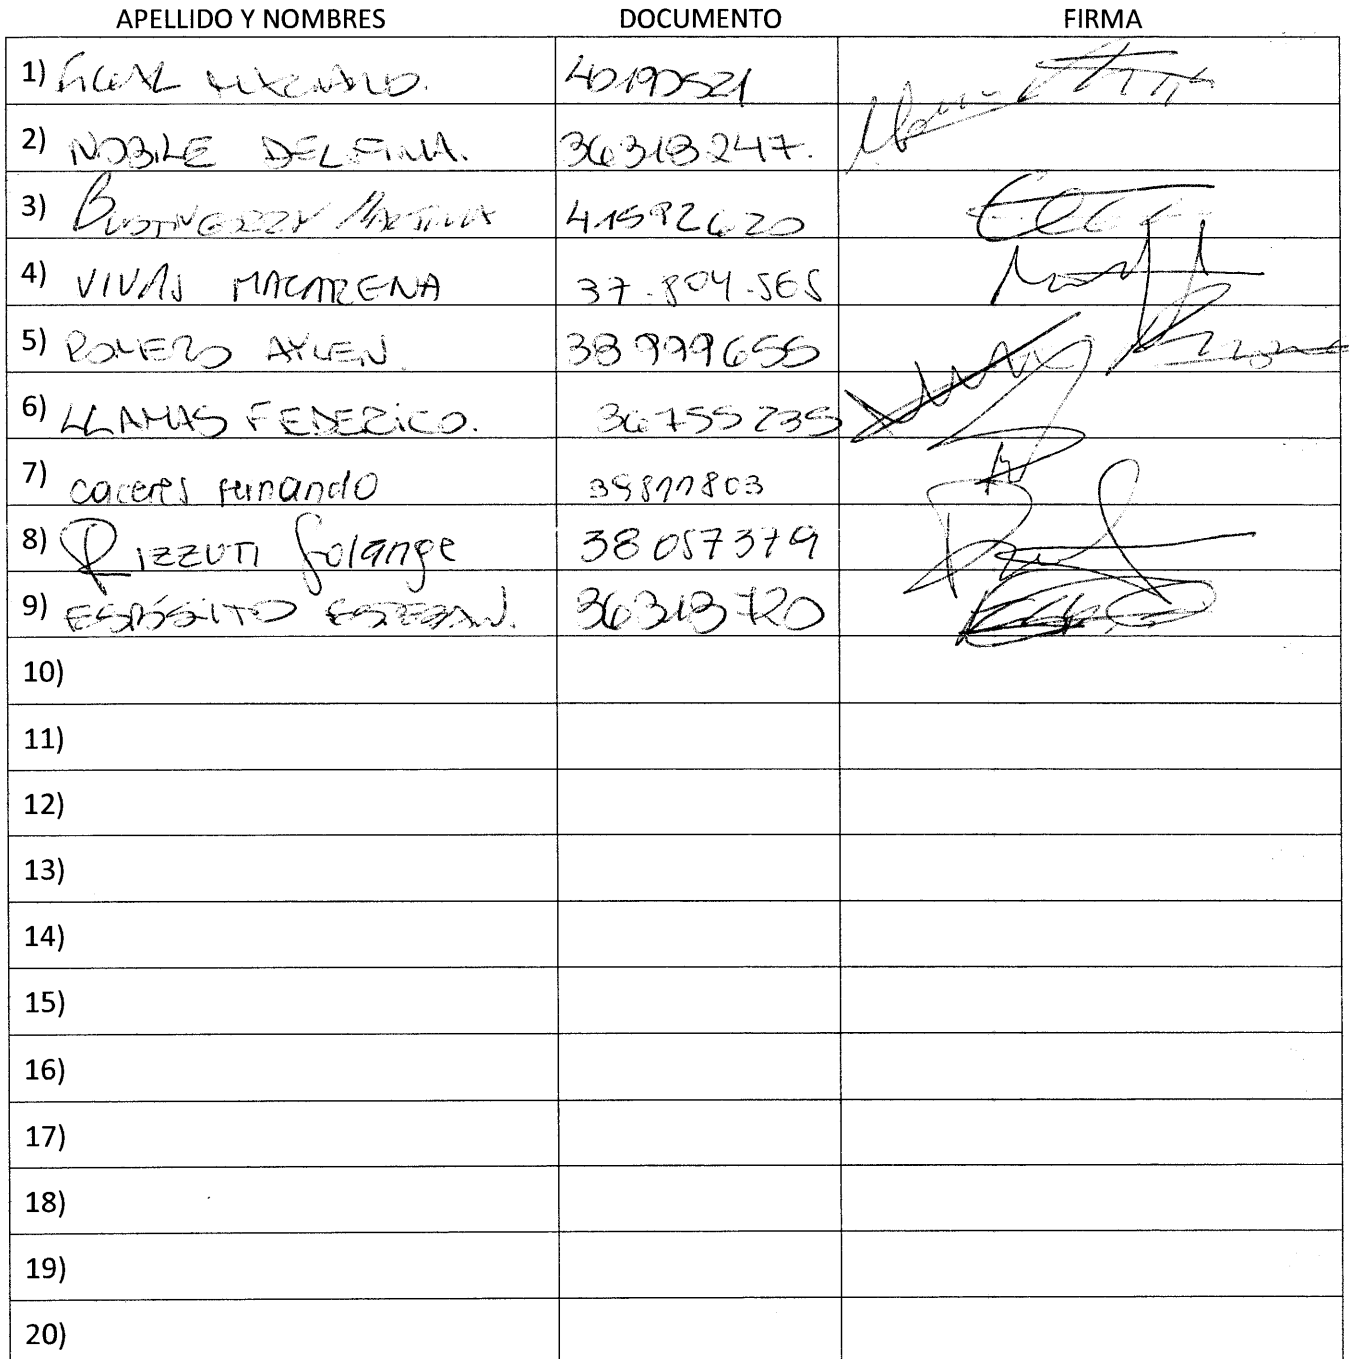 APELLIDO Y NOMBRES DOCUMENTO FIRMA
1) 40190521
2) NOBILE DELFINA. 36318247.
3) 41592620
4) VIVAS MACARENA 37.804.565
5) ROMERO AYLEN 38999655
6) LLAMAS FEDERICO. 36755235
7) caceres fernando
8) RIZZUTI Solange 38057379
9) ESPÓSITO ESTEBAN. 36313720
10)
11)
12)
13)
14)
15)
16)
17)
18)
19)
20)